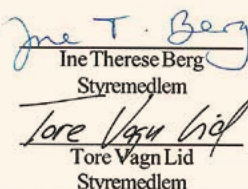 Ine T. Berg
Ine Therese Berg
Styremedlem
Tore Vagn Lid
Tore Vagn Lid
Styremedlem